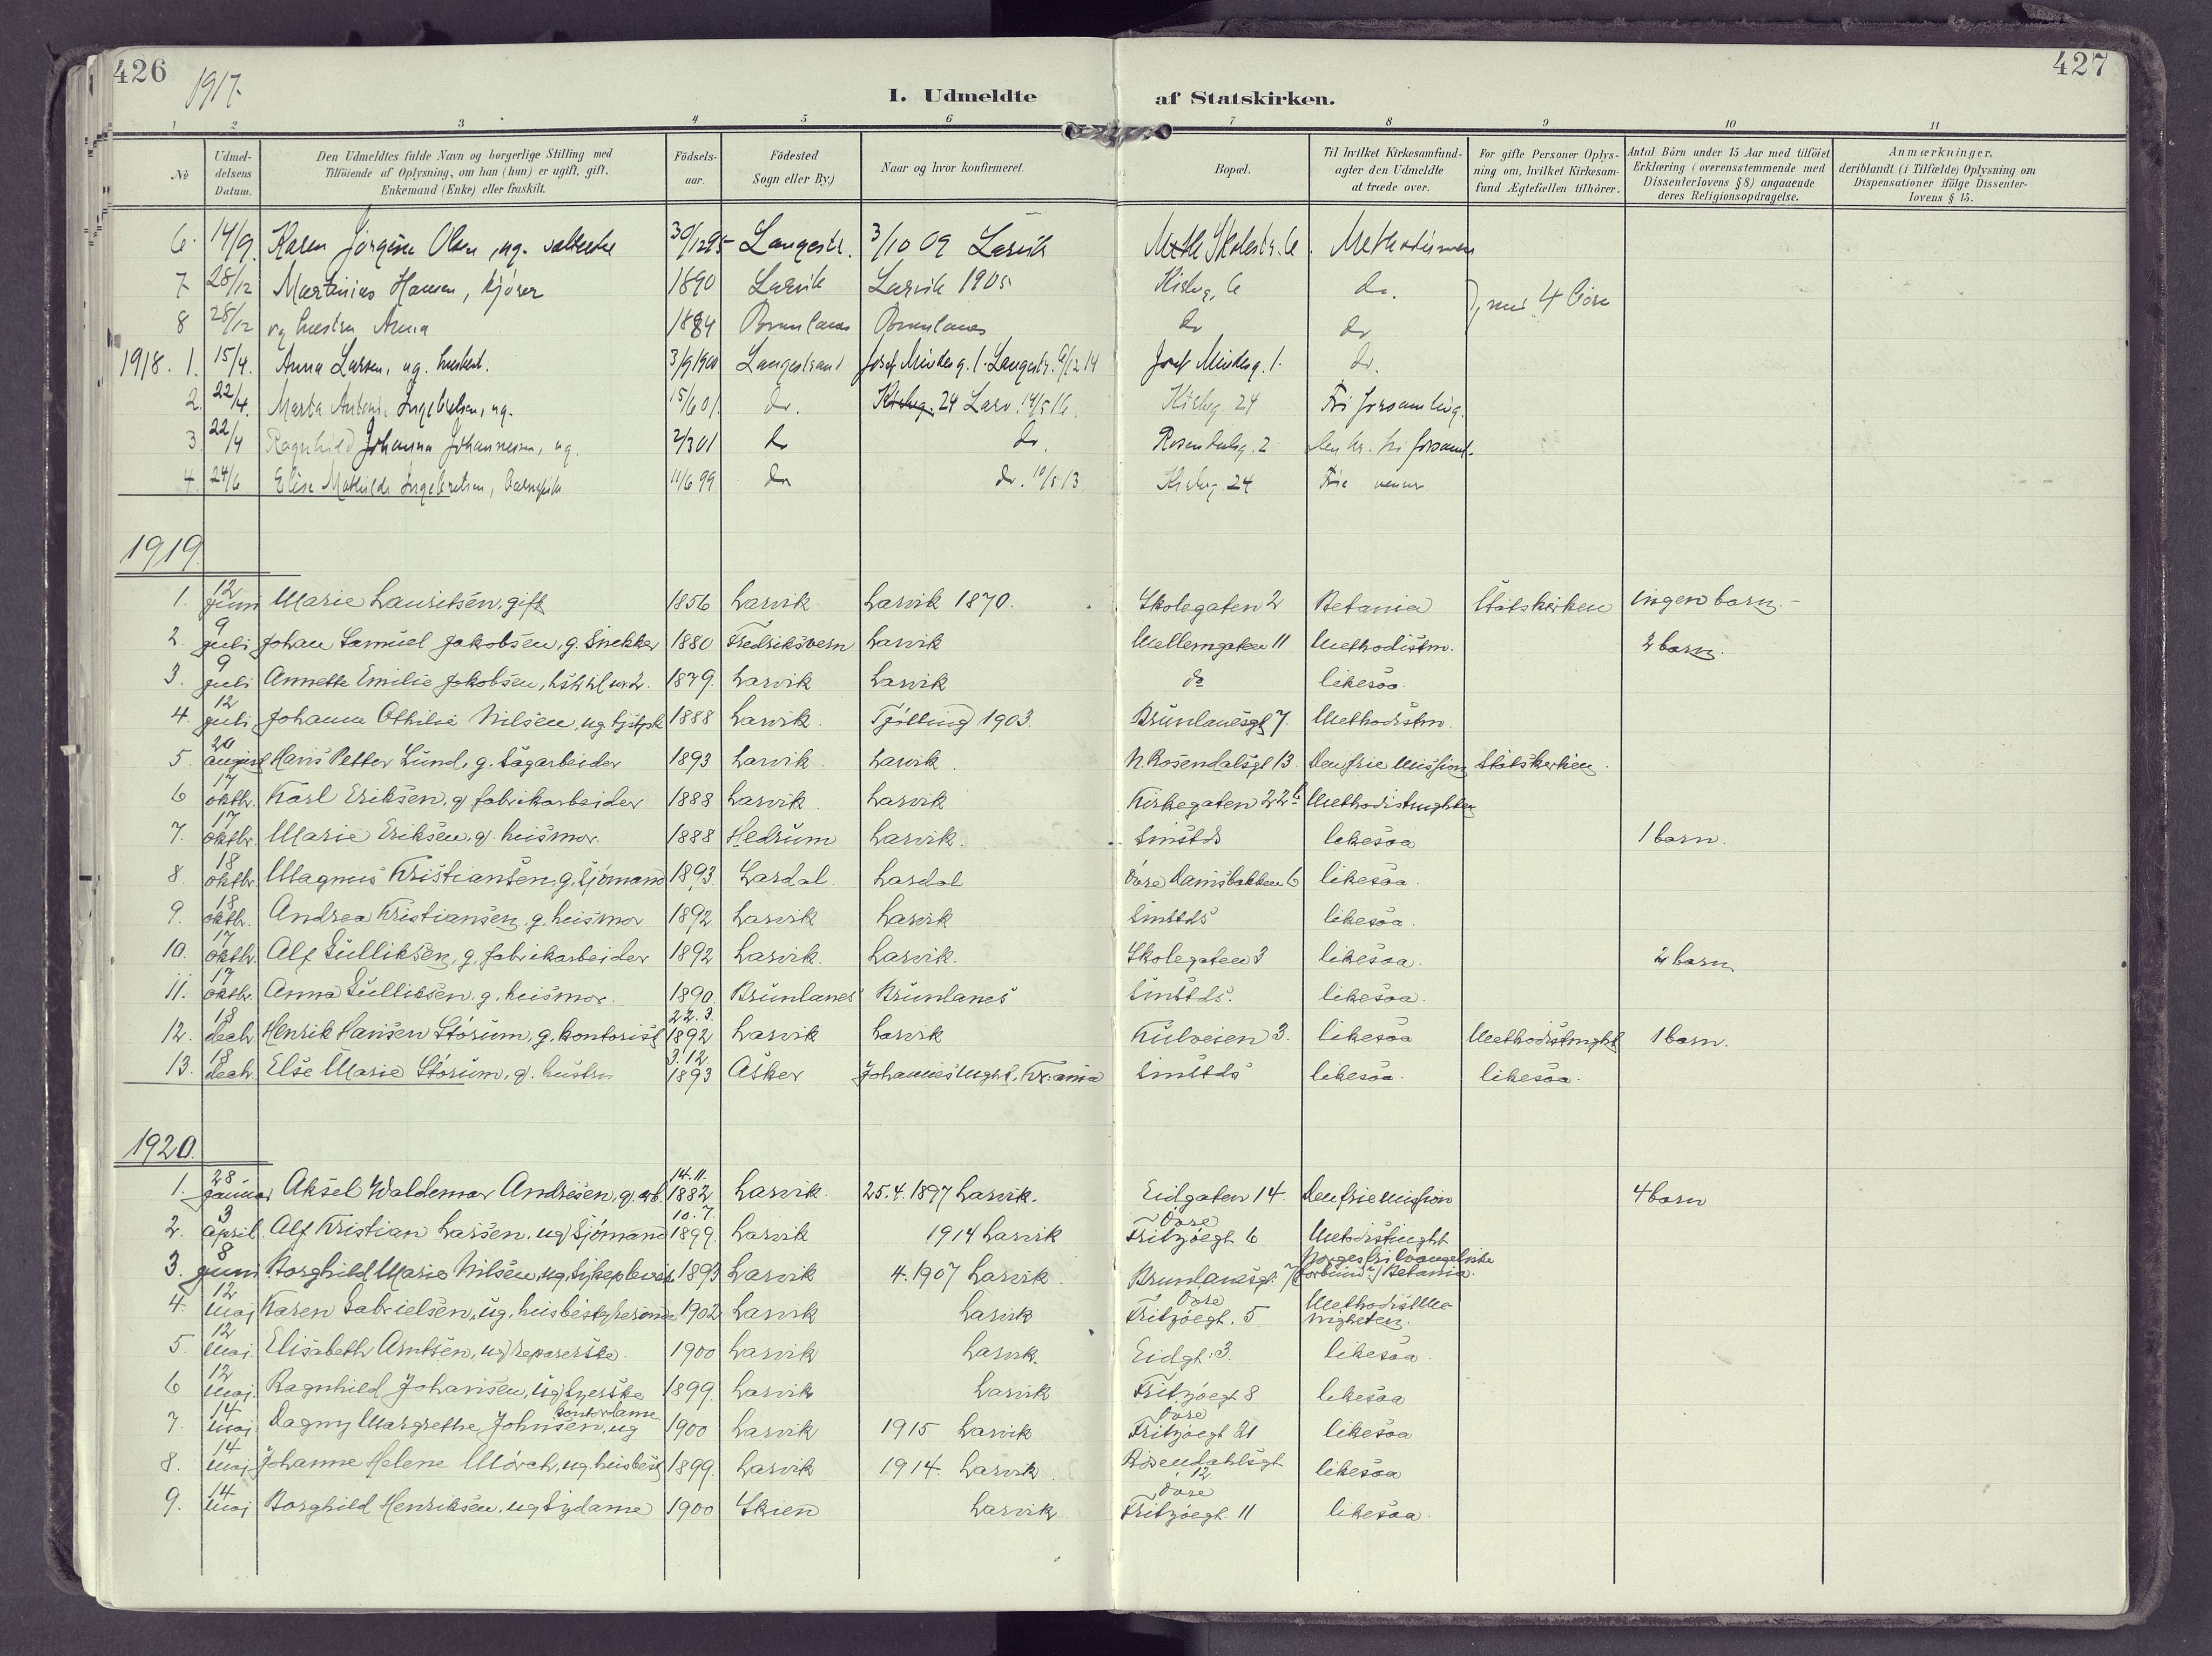 426
427
1917.
I. Udmeldte af Statskirken.
1 2 3 4 5 6 7 8 9 10 11
No
Udmel-
delsens
Datum.
Den Udmeldtes fulde Navn og borgerlige Stilling med
Tilföiende af Oplysning, om han (hun) er ugift, gift,
Enkemand (Enke) eller fraskilt.
Födsels-
aar.
Födested
Sogn eller By.)
Naar og hvor konfirmeret.
Bopæl.
Til hvilket Kirkesamfund-
agter den Udmeldte
at træde over.
For gifte Personer Oplys-
ning om, hvilket Kirkesam-
fund Ægtefællen tilhörer.
Antal Börn under 15 Aar med tilföiet
Erklæring (overensstemmende med
Dissenterlovens § 8) angaaende
deres Religionsopdragelse.
Anmærkninger,
deriblandt (i Tilfælde) Oplysning om
Dispensationer ifölge Dissenter-
lovens § 15.
6. 14/9. Karen Jörgine Olsen, ug. 30/1295 Langestr. 3/10 09 Larvik Skolestr. 6. Methodismen
7 28/12 Martinius Hansen, kjörer 1890 Larvik Larvik 1905 Kirkeg. 6 do. 4 börn
8 28/12 og hustru Anna 1884 Brunlanes Brunlanes do do
1918. 1. 15/4. Anna Larsen, ug. 3/9 1900 Langestrand Josef Mindes g. 1. Langestr. 9/12 14 Josef Mindes g. 1. do.
2. 22/4. Marta Antonie Ingebretsen, ug. 15/6 01. do. Kirkeg. 24 Larv. 14/5 16. Kirkeg. 24 Fri forsamling.
3. 22/4 Ragnhild Johanna Johannesen, ug. 2/3 01 do do. Rosendalsg. 2 Den kr. fri forsaml.
4. 24/6 Elise Mathilde Ingebretsen, 11/6 99 do do. 10/5 13 Kirkeg 24 Frie venner
1919.
1. 12 juni Marie Lauritsen, gift 1856 Larvik Larvik 1870. Skolegaten 2 Betania Statskirken ingen barn.-
2. 9 juli Johan Samuel Jakobsen, g. Snekker 1880 Fredriksvern Larvik Mellemgaten 11 Methodistm. 2 barn.
3. 9 juli Annette Emilie Jakobsen, 1879. Larvik Larvik do likesaa.
4. 12 juli Johanne Othilie Nilsen, ug. 1888 Larvik. Tjölling 1903. Brunlanesgt 7. Methodistm.
5. 20 august Hans Petter Lund, g. Sagarbeider 1893 Larvik. Larvik. N. Rosendalsgt 13 Den frie Mission Statskirken.
6 17 oktbr. Karl Eriksen, g. fabrikarbeider 1888 Larvik. Larvik Kirkegaten 22 b Methodistmghten
7. 17 oktbr. Marie Eriksen, g. husmor. 1888 Hedrum Larvik. Smstds likesaa 1 barn.
8. 18 oktbr. Magnus Kristiansen, g. Sjömand 1893. Lardal. Lardal Övre Damsbakken 6 likesaa.
9. 18 oktbr. Andrea Kristiansen, g. husmor 1892 Larvik Larvik Smstds likesaa.
10. 17 oktbr. Alf Gulliksen, g. fabrikarbeider 1892 Larvik. Larvik. Skolegaten 3 likesaa. 2 barn
11. 17 oktbr. Anna Gulliksen, g. husmor. 1890. Brunlanes Brunlanes Smstds. likesaa.
12. 18 decbr. Henrik Hansen Störum, g. kontorist 22.3. 1892 Larvik Larvik Kulveien 3. likesaa Methodistmght 1 barn.
13. 18 decbr. Else Marie Störum, g. hustru 3.12 1893 Asker Johannes Mght. Kr:ania Smstds likesaa. likesaa.
1920.
1. 28 januar Aksel Waldemar Andresen, g. arb. 14.11. 1882 Larvik. 25.4.1897 Larvik. Eidgaten 14. Den frie mission 4 barn
2. 3 april. Alf Kristian Larsen, ug Sjömand 10.7. 1899. Larvik 1914 Larvik Övre Fritzöegt 6 Metodistmght
3. 8 juni Borghild Marie Nilsen, ug. Sykepleierske 1893 Larvik 4.1907 Larvik. Brunlanesgt. 7 Norges fri evangeliske forbund / Betania.
4. 12 maj Karen Gabrielsen, ug. husbestyrerinde 1902 Larvik Larvik Övre Fritzöegt. 5 Methodistme-
nigheten.
5 12 maj. Elisabeth Arntsen, ug reparerske 1900 Larvik Larvik. Eidgt: 3. likesaa.
6 12 maj. Ragnhild Johansen, ug Syerske 1899. Larvik Larvik Fritzöegt 8 likesaa
7. 14 maj Dagny Margrethe Johnsen, ug kontordame 1900 Larvik 1915 Larvik Övre Fritzöegt 21 likesaa
8. 14 maj Johanne Helene Mörch, ug. husbest 1899. Larvik 1914. Larvik. Rosendahlsgt 12 likesaa
9. 14 maj Borghild Henriksen, ug Sydame 1900 Skien Larvik Övre Fritzöegt. 11 likesaa.